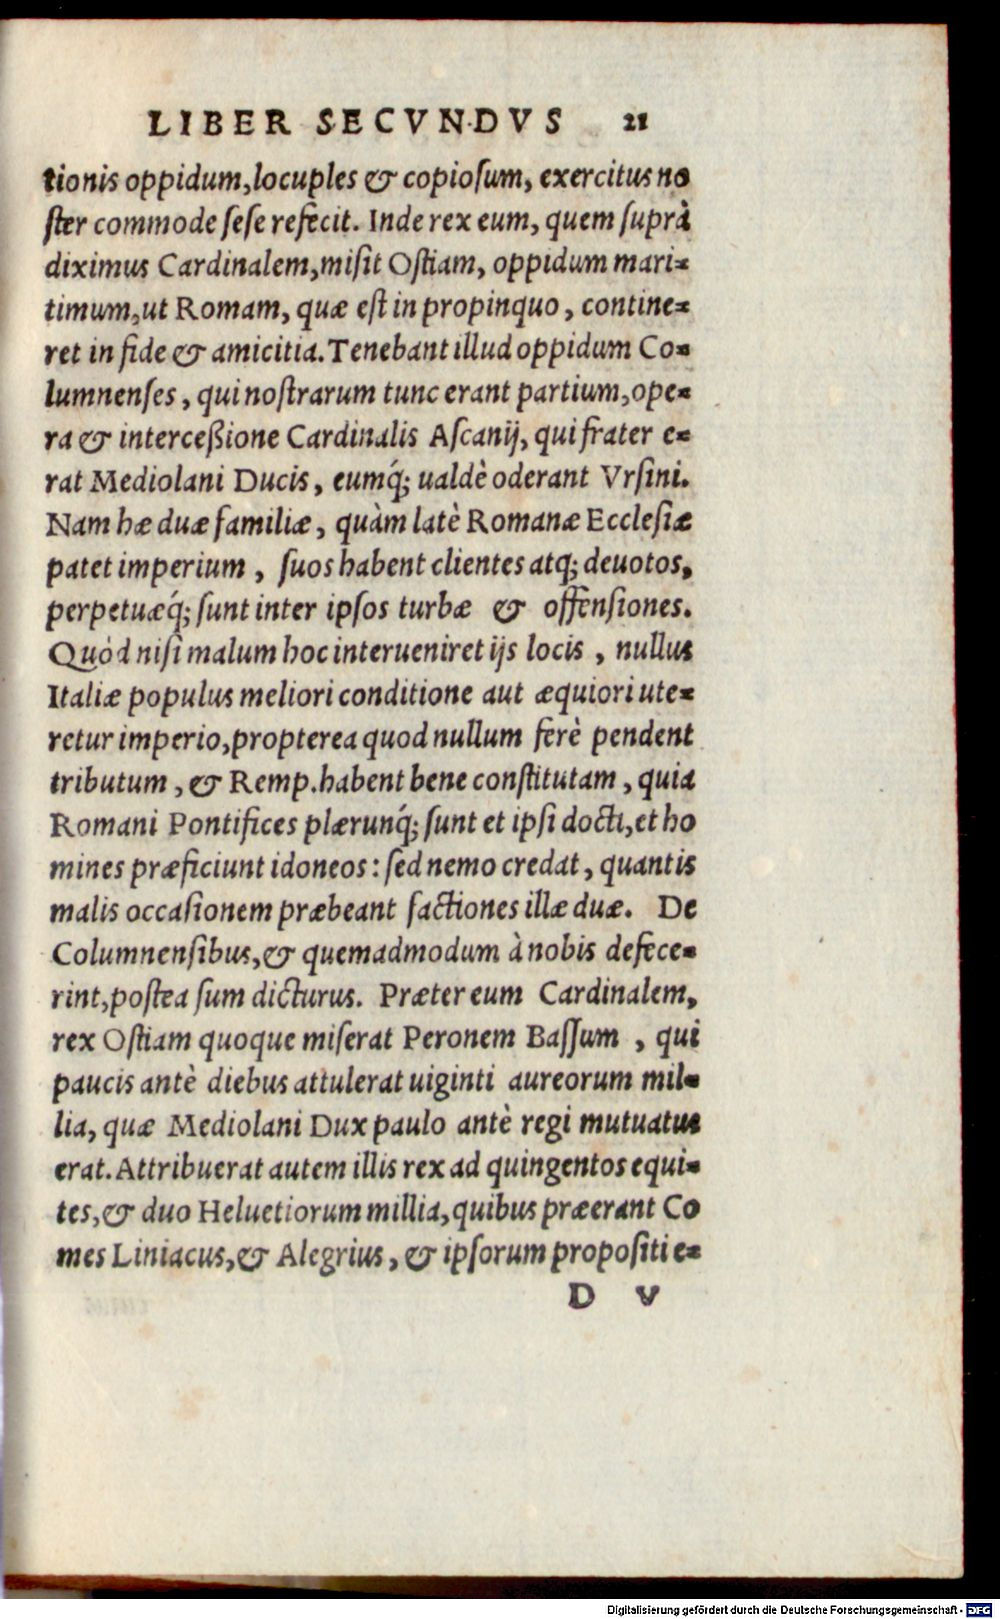 LIBER SECVNDVS 21
tionis oppidum, locuples & copiosum, exercitus no
ster commode sese refecit. Inde rex eum, quem suprà
diximus Cardinalem, misit Ostiam, oppidum mari-
timum, ut Romam, quæ est in propinquo, contine-
ret in fide & amicitia. Tenebant illud oppidum Co-
lumnenses, qui nostrarum tunc erant partium, ope-
ra & interceßione Cardinalis Ascanij, qui frater e-
rat Mediolani Ducis, eumq́; ualdè oderant Vrsini.
Nam hæ duæ familiæ, quàm latè Romanæ Ecclesiæ
patet imperium, suos habent clientes atq; deuotos,
perpetuæq́; sunt inter ipsos turbæ & offensiones.
Quòd nisi malum hoc interueniret ijs locis, nullus
Italiæ populus meliori conditione aut æquiori ute-
retur imperio, propterea quod nullum ferè pendent
tributum, & Remp. habent bene constitutam, quia
Romani Pontifices plærunq́; sunt et ipsi docti, et ho
mines præficiunt idoneos: sed nemo credat, quantis
malis occasionem præbeant factiones illæ duæ. De
Columnensibus, & quemadmodum à nobis defece-
rint, postea sum dicturus. Præter eum Cardinalem,
rex Ostiam quoque miserat Peronem Bassum, qui
paucis antè diebus attulerat uiginti aureorum mil-
lia, quæ Mediolani Dux paulo antè regi mutuatus
erat. Attribuerat autem illis rex ad quingentos equi-
tes, & duo Heluetiorum millia, quibus præerant Co
mes Liniacus, & Alegrius, & ipsorum propositi e-
D v
Digitalisierung gefördert durch die Deutsche Forschungsgemeinschaft - DFG